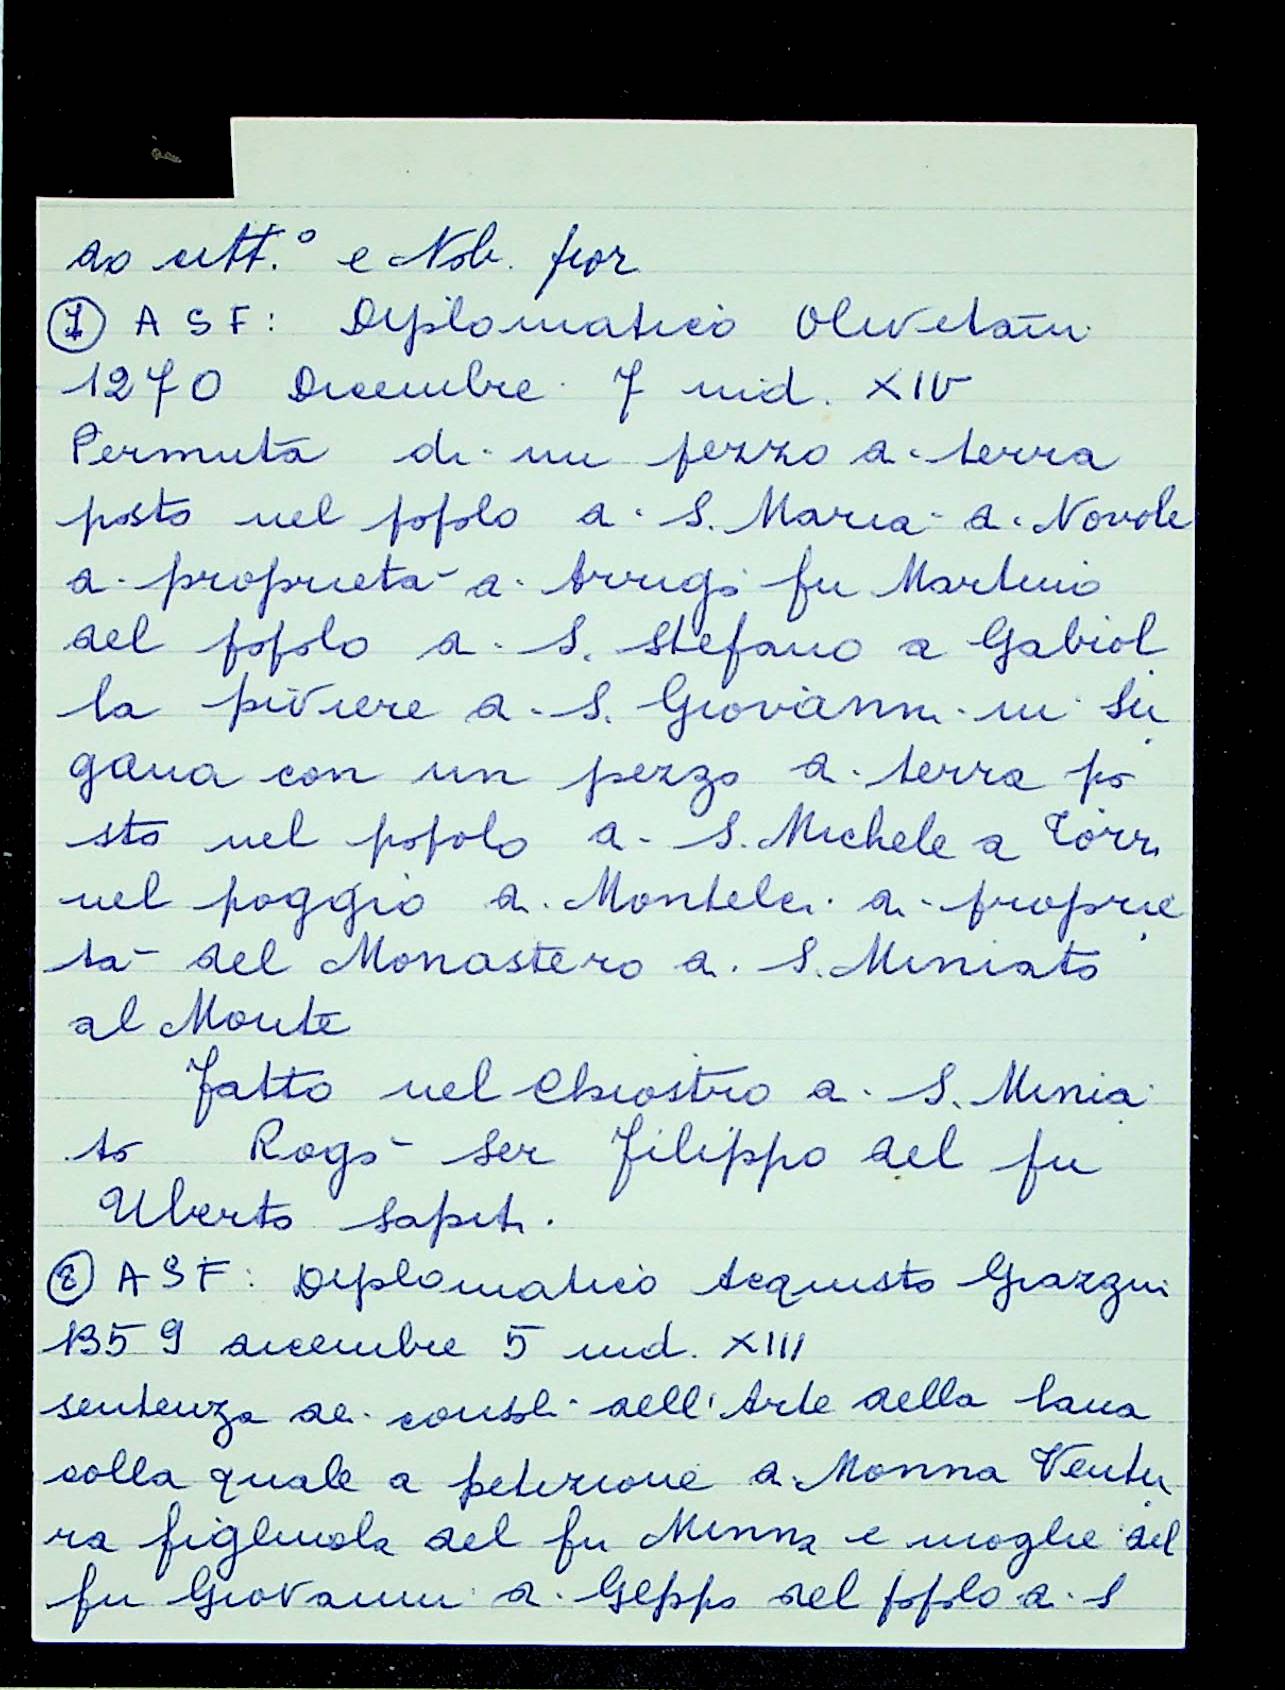 do citt.° e Nob. fior
① ASF: Diplomatico Olivetani
1270 Dicembre 7 ind. XIV
Permuta di un pezzo di terra
posto nel popolo di S. Maria di Novole
di proprietà di Arrigo fu Martino
del popolo di S. Stefano a Gabiol
la piviere di S. Giovanni in Su
gana con un pezzo di terra po
sto nel popolo di S. Michele a Torri
nel poggio di Monteleri di proprie
tà del Monastero di S. Miniato
al Monte
Fatto nel Chiostro di S. Minia
to Rogò ser Filippo del fu
Uberto Sapiti.
② ASF: Diplomatico Acquisto Grazzini
1359 dicembre 5 ind. XIII
sentenza dei consoli dell'Arte della lana
colla quale a petizione di Monna Ventu
ra figliuola del fu Minna e moglie del
fu Giovanni di Geppo del popolo di S